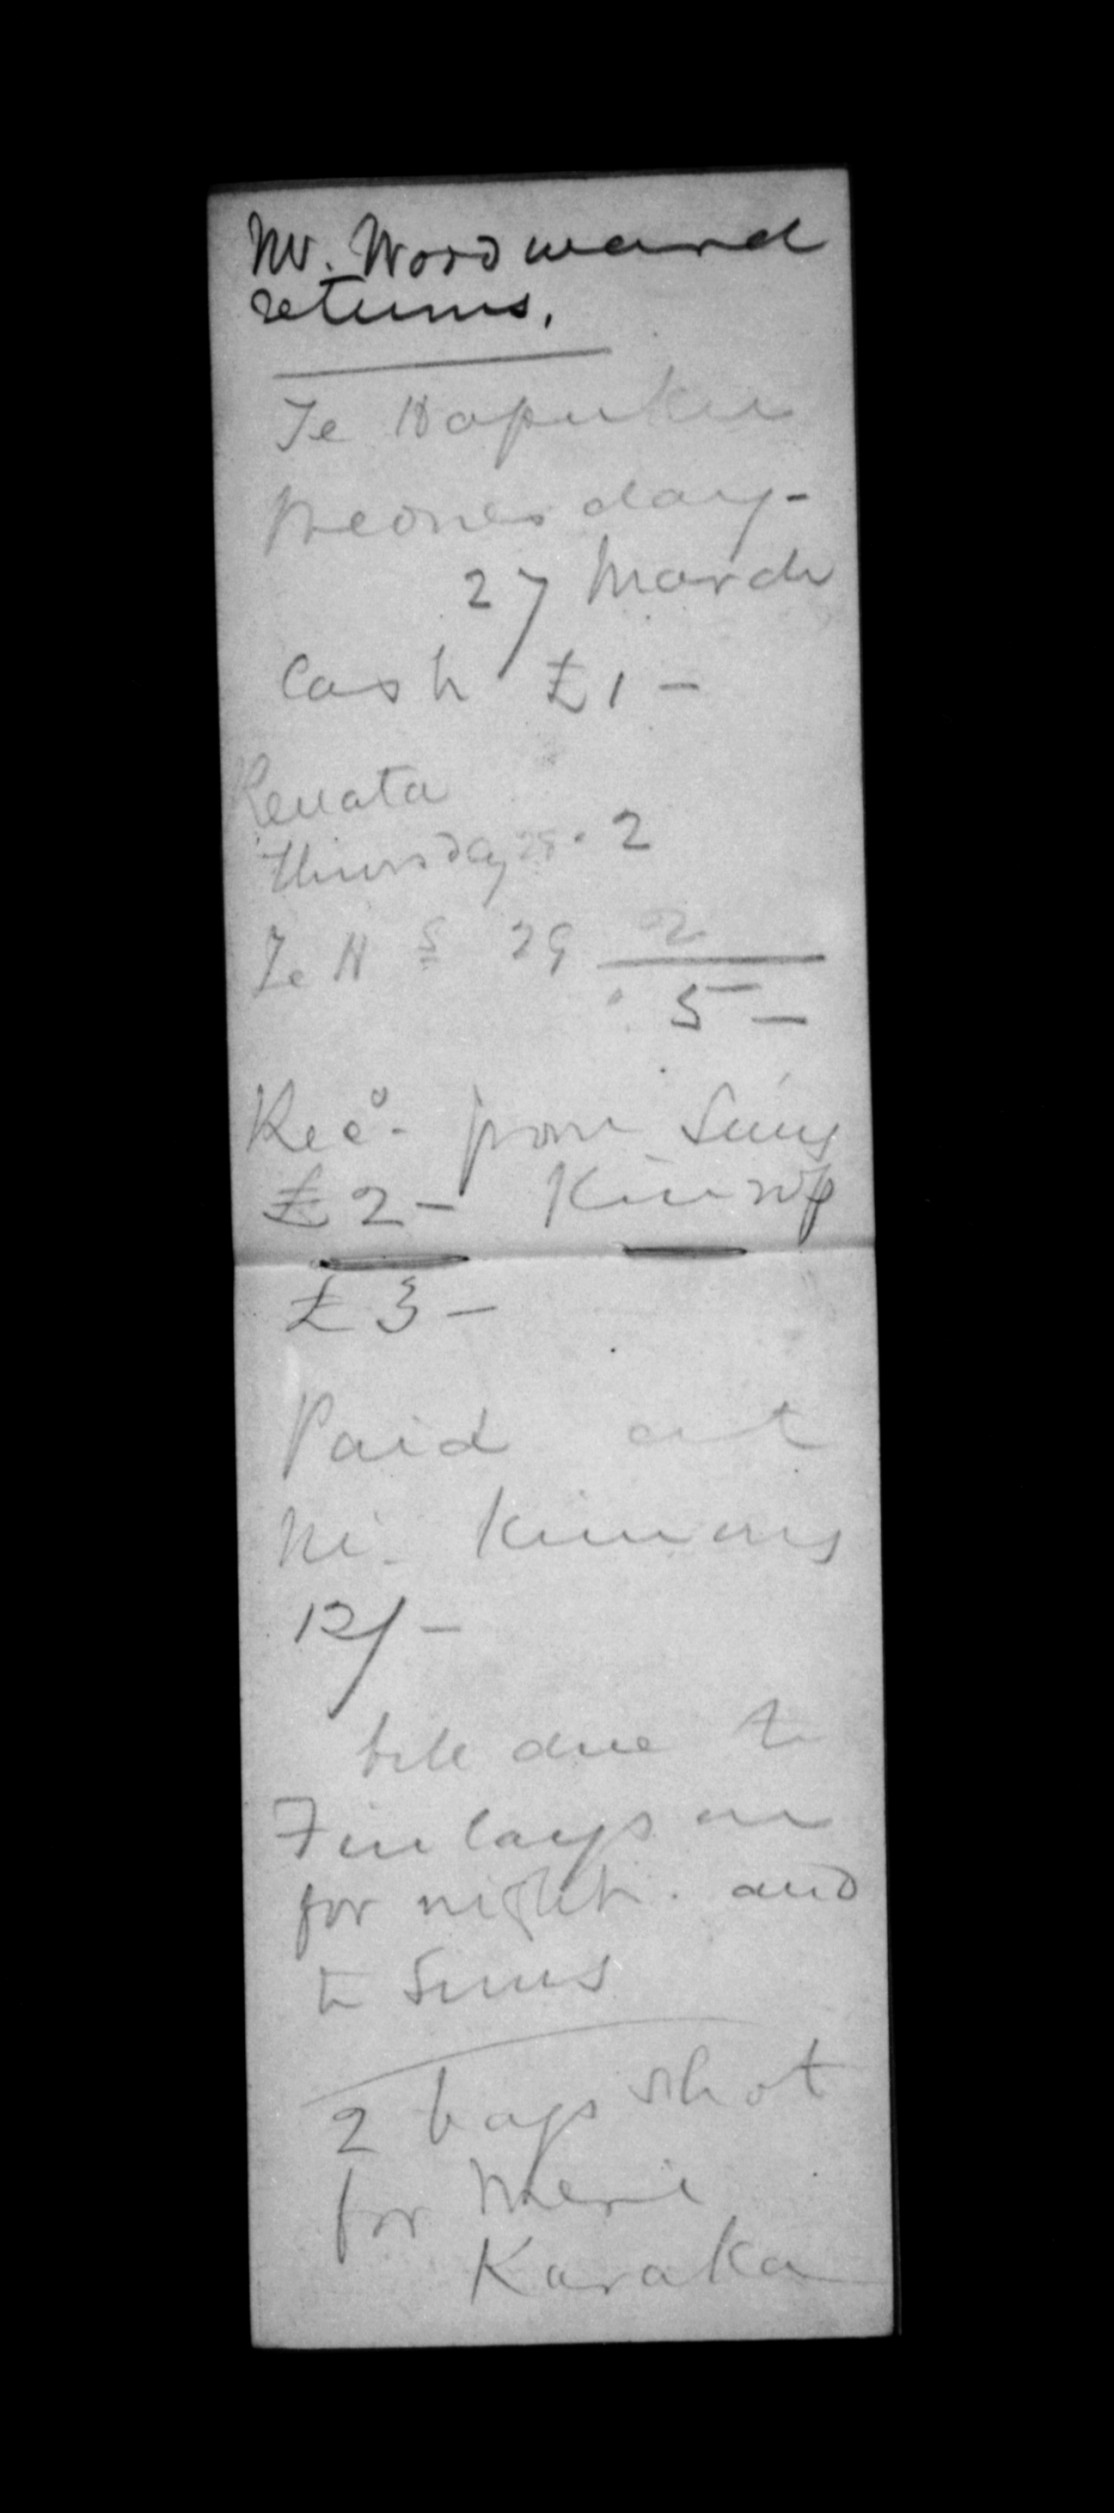 Mr. Woodward
returns.
Te Hapuku
Wednesday -
27 March
Cash £1 -
Renata
Thursday 28 . 2
Te H 29 2
5 -
Recd. from
£2 -
£3 -
Paid at
12/-
bill due to
Finlayson
for night. and
to Sims
2 bags shot
for Meri
Karaka